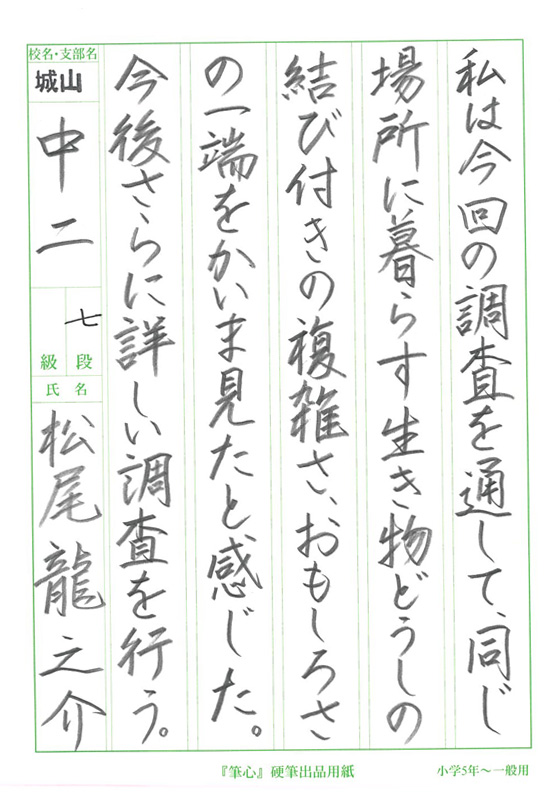 私は今回の調査を通して、同じ
場所に暮らす生き物どうしの
結び付きの複雑さ、おもしろさ
の一端をかいま見たと感じた。
今後さらに詳しい調査を行う。
校名・支部名
城山
中二
七
段
級
氏名
松尾龍之介
『筆心』硬筆出品用紙
小学5年～一般用